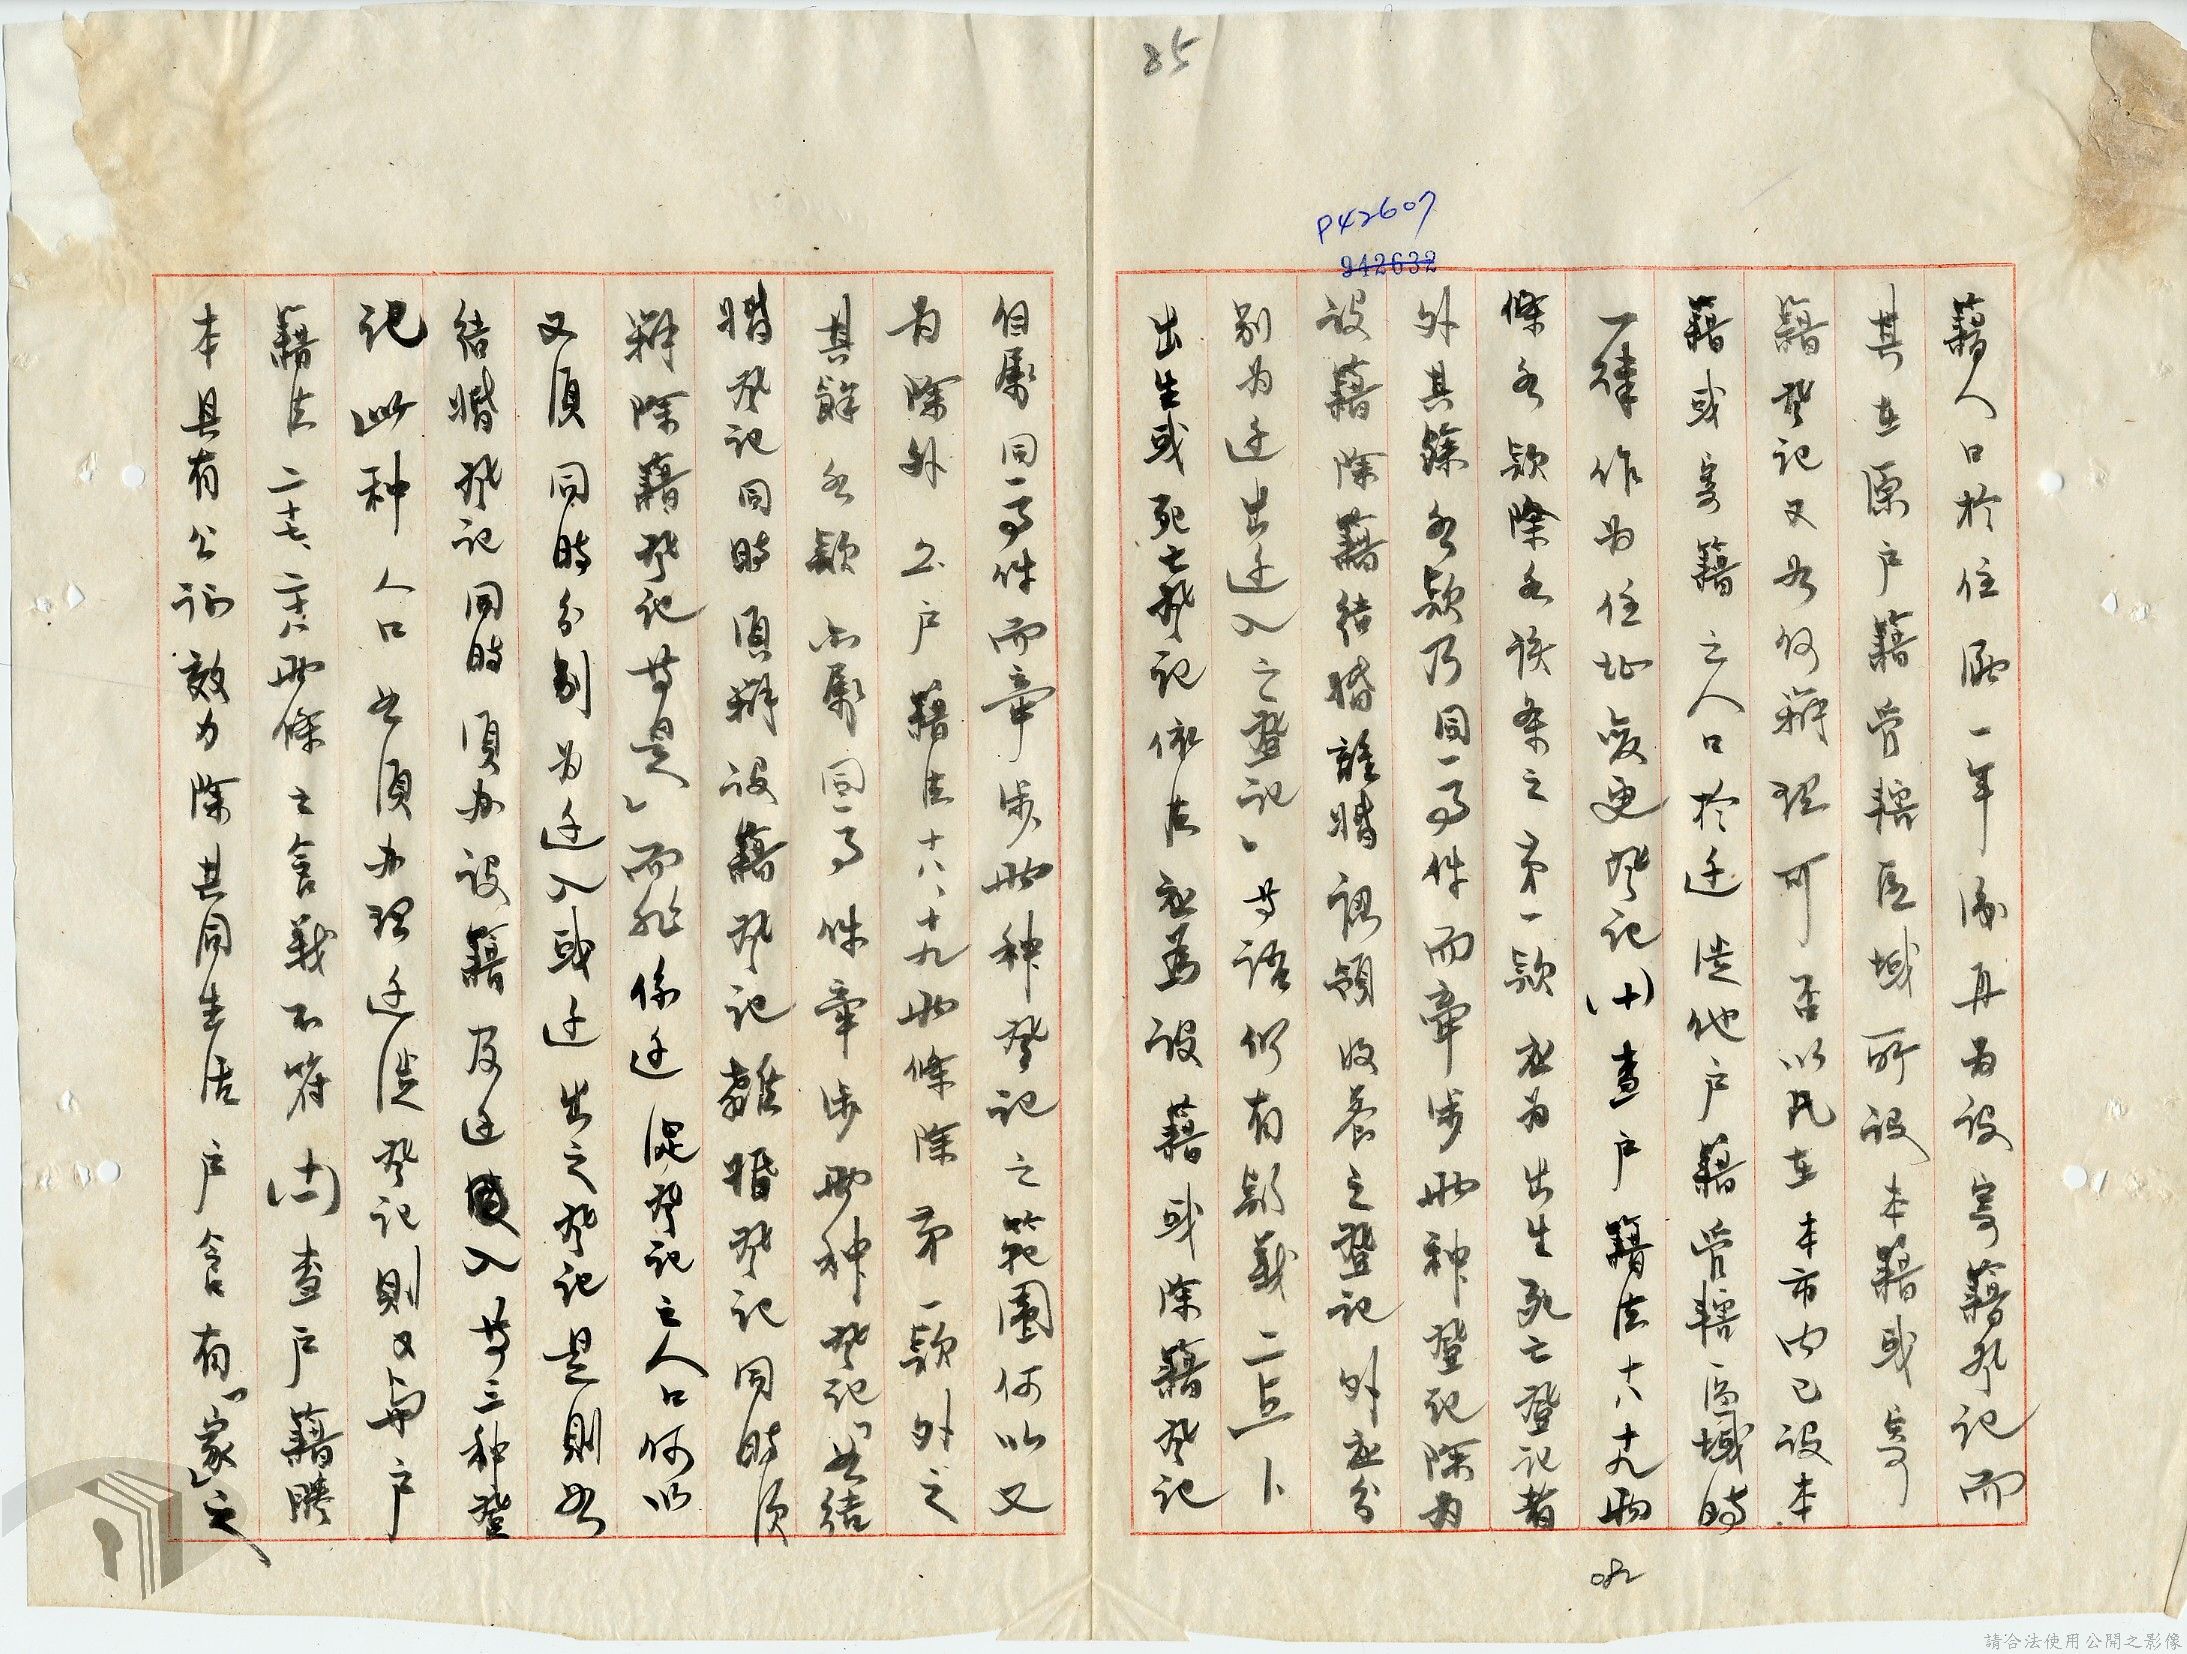 85
P42607
942632
籍人口於住滿一年後再為設寄籍登記而
其在原戶籍管轄區域所設本籍或寄
籍登記又如何辦理可否以凡在本市內已設本
籍或寄籍之人口於迁徙他戶籍管轄區域時
一律作為住址变更登記(十)查戶籍法十八十九兩
條各款除各該条之第一款应为出生死亡登記者
外其餘各款乃同一事件而牽涉兩种登記除为
設籍除籍結婚離婚認領收养之登記外应分
别为迁出迁入之登記」等語仍有疑義二点卜
出生或死亡登記依法应為設籍或除籍登記
但屬同一事件而牽涉兩种登記之範圍何以又
为除外2.戶籍法十八、十九兩條除第一款外之
其餘各款亦屬同一事件牽涉兩种登記「如結
婚登記同時須辦設籍登記離婚登記同時須
辦除籍登記等是」而非係迁徙登記之人口何以
又須同時分别为迁入或迁出之登記是則如
結婚登記同時須办設籍及迁入等三种登
記此种人口如須办理迁徙登記則又与戶
籍法二十七、二十八兩條之含義不符(十一)查戶籍謄
本具有公証效力除共同生活戶含有「家」之